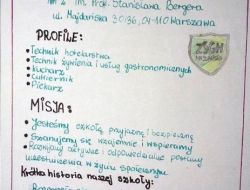 Nr 2 im. Prof. Stanisława Bergera
ul. Majdańska 30/36, 04-110 Warszawa
PROFILE:
• Technik hotelarstwa
• Technik żywienia i usług gastronomicznych
• Kucharz
• Cukiernik
• Piekarz
MISJA:
• Jesteśmy szkołą przyjazną i bezpieczną
• Szanujemy się wzajemnie i wspieramy
• Rozwijamy aktywne i odpowiedzialne postawy
uczestniczenia w życiu społecznym
Krótka historia naszej szkoły: